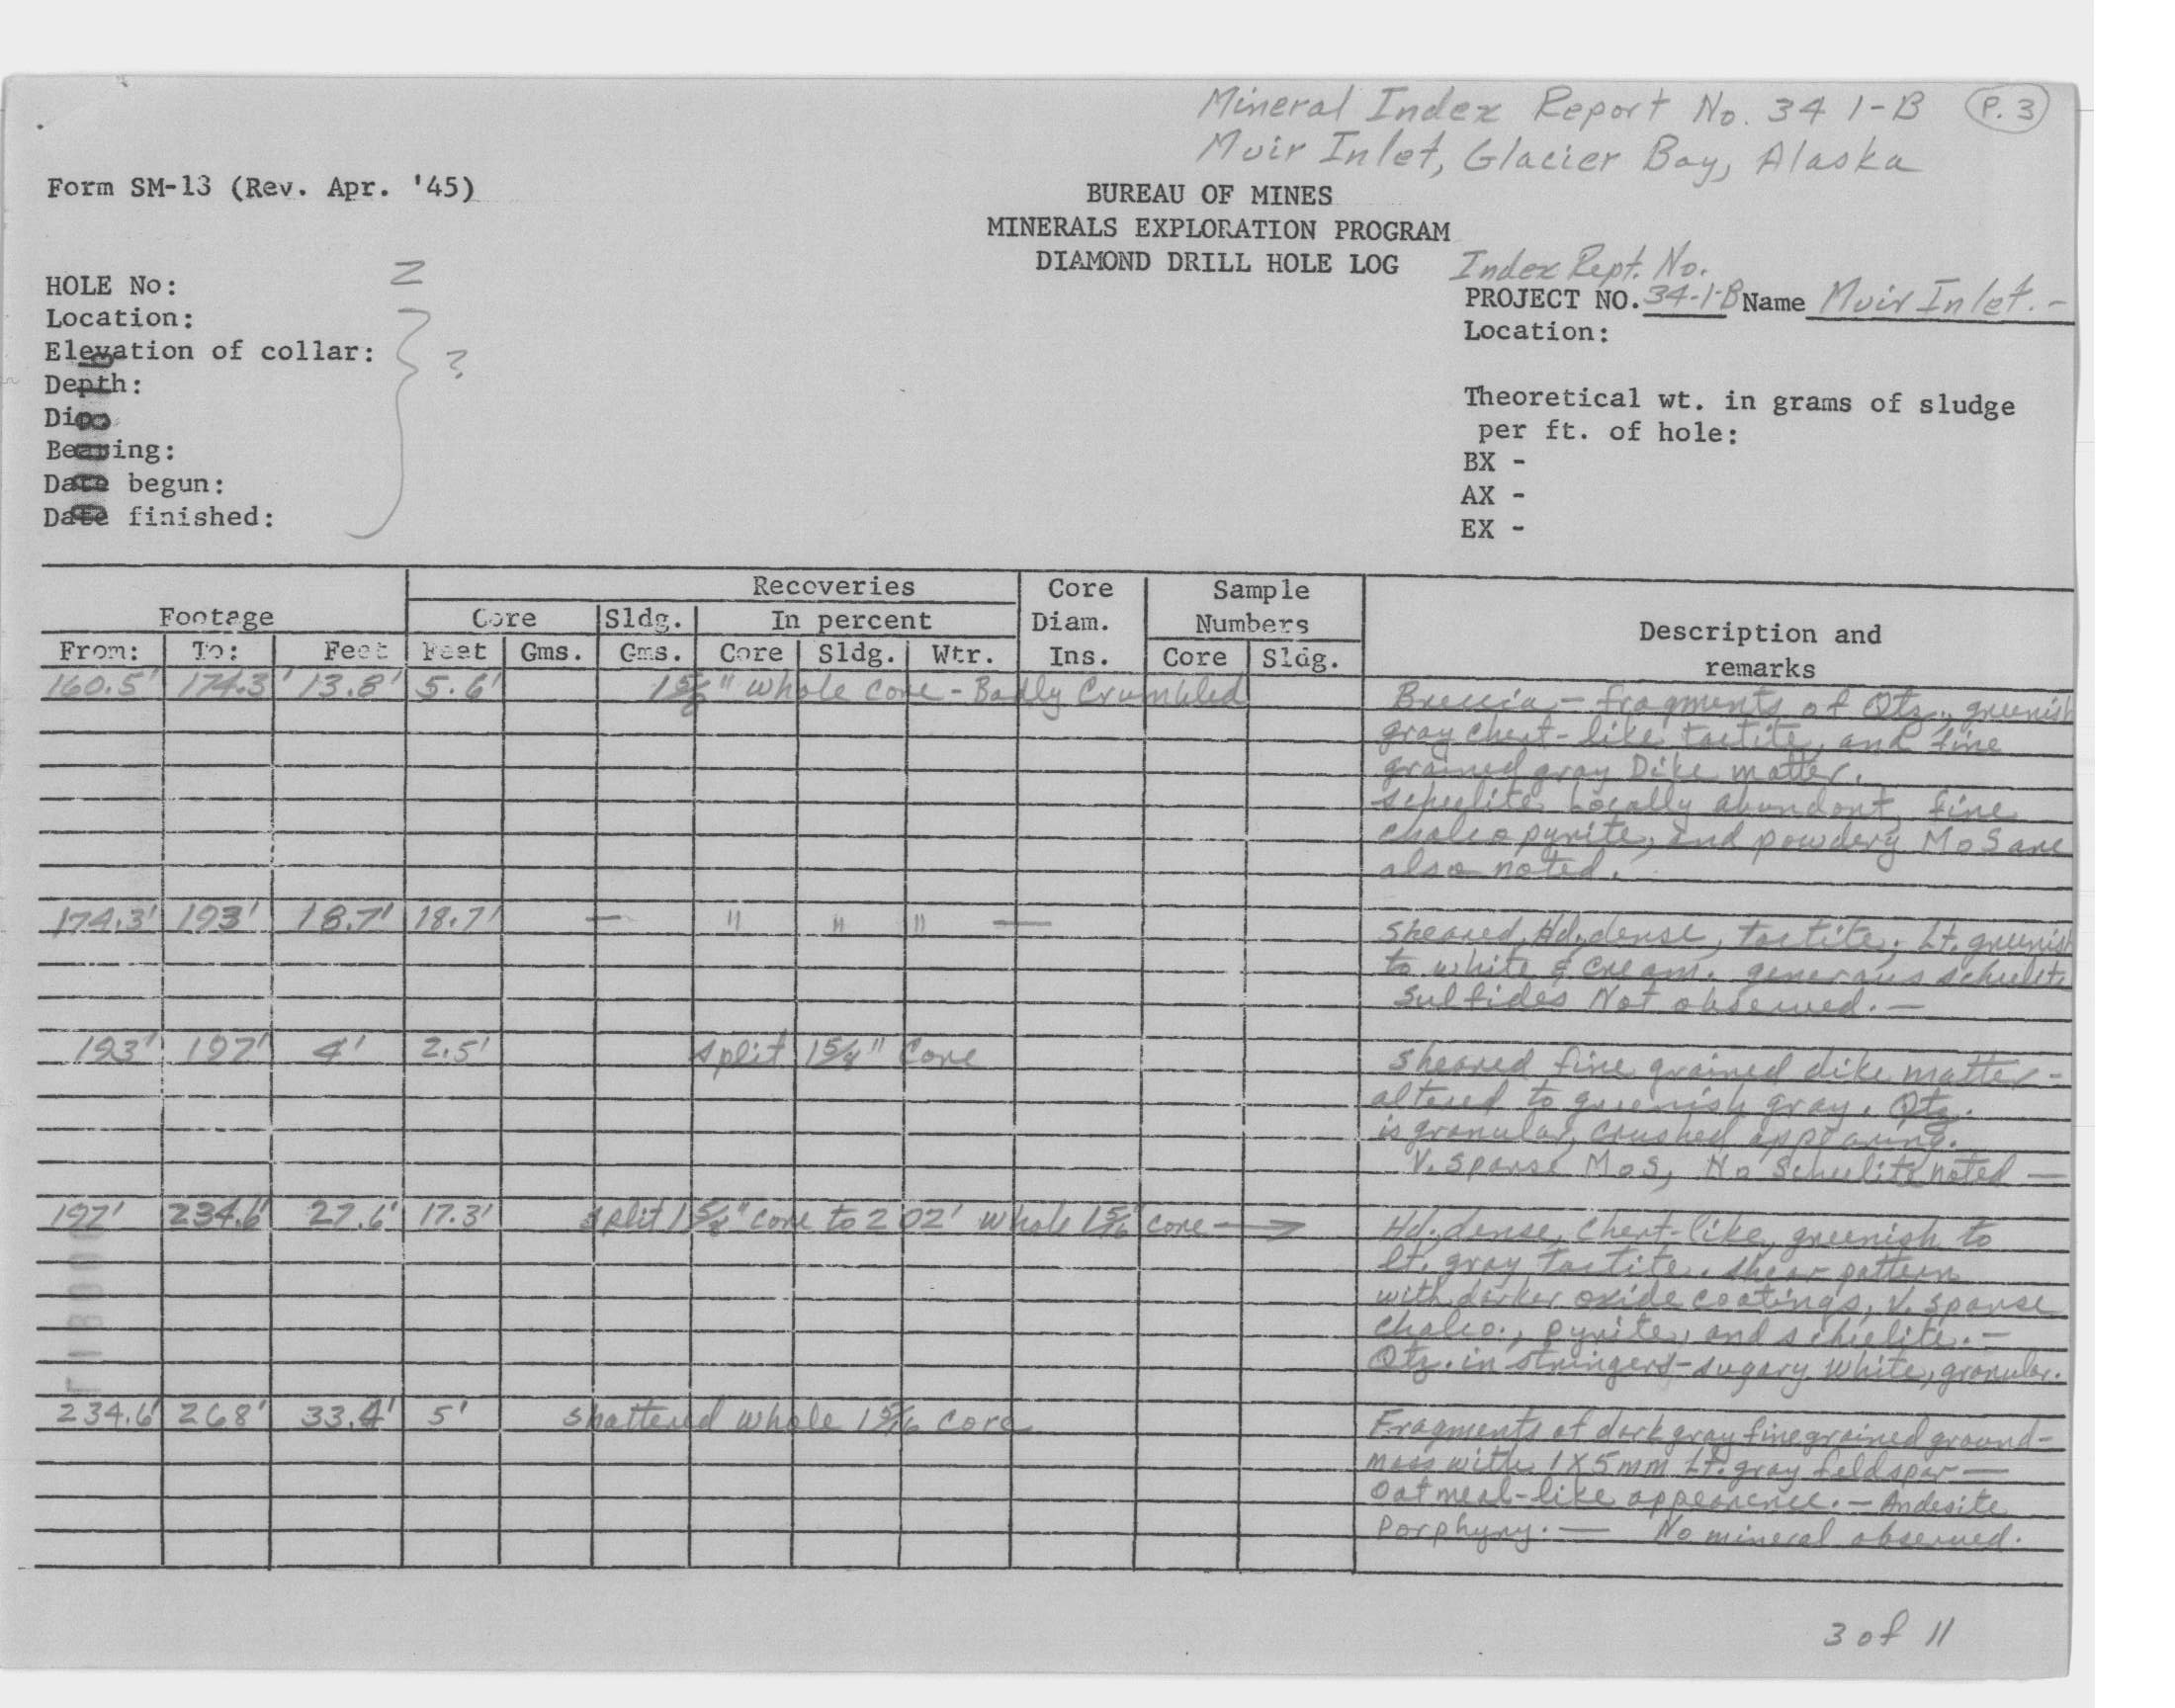 Mineral Index Report No. 34 1-B P. 3
Muir Inlet, Glacier Bay, Alaska
Form SM-13 (Rev. Apr. '45)
BUREAU OF MINES
MINERALS EXPLORATION PROGRAM
DIAMOND DRILL HOLE LOG
Index Rept. No.
HOLE No: 2
PROJECT NO. 34-1-B Name Muir Inlet. -
Location:
Location:
Elevation of collar: ?
Depth:
Theoretical wt. in grams of sludge
Dip
per ft. of hole:
Bearing:
BX -
Date begun:
AX -
Date finished:
EX -
Recoveries Core Sample
Footage Core Sldg. In percent Diam. Numbers Description and
From: To: Feet Feet Gms. Gms. Core Sldg. Wtr. Ins. Core Sldg. remarks
160.5' 174.3' 13.8' 5.6' 1 5/8" whole core - Badly Crumbled Breccia - fragments of Qtz., greenish
gray chert-like tactite, and fine
grained gray Dike matter.
scheelite locally abundant, fine
chalcopyrite, and powdery MoS are
also noted.
174.3' 193' 18.7' 18.7' — " " " — Sheared, Hd, dense, tactite, Lt. greenish
to white & cream. generous scheelt.
Sulfides Not observed. —
193' 197' 4' 2.5' split 1 5/8" Core Sheared fine grained dike matter -
altered to greenish gray. Qtz.
is granular, crushed appearing.
V. sparse MoS, No Scheelite noted —
197' 234.6' 27.6' 17.3' split 1 5/8" core to 202' whole 1 5/16" core → Hd, dense, chert-like, greenish to
lt. gray tactite. shear pattern
with darker oxide coatings, v. sparse
chalco., pyrite, and scheelite. —
Qtz. in stringers - sugary white, granular.
234.6' 268' 33.4' 5' shattered whole 1 5/16 core Fragments of dark gray fine grained ground-
mass with 1 X 5 mm Lt. gray feldspar —
Oatmeal-like appearence. — Andesite
Porphyry. — No mineral observed.
3 of 11